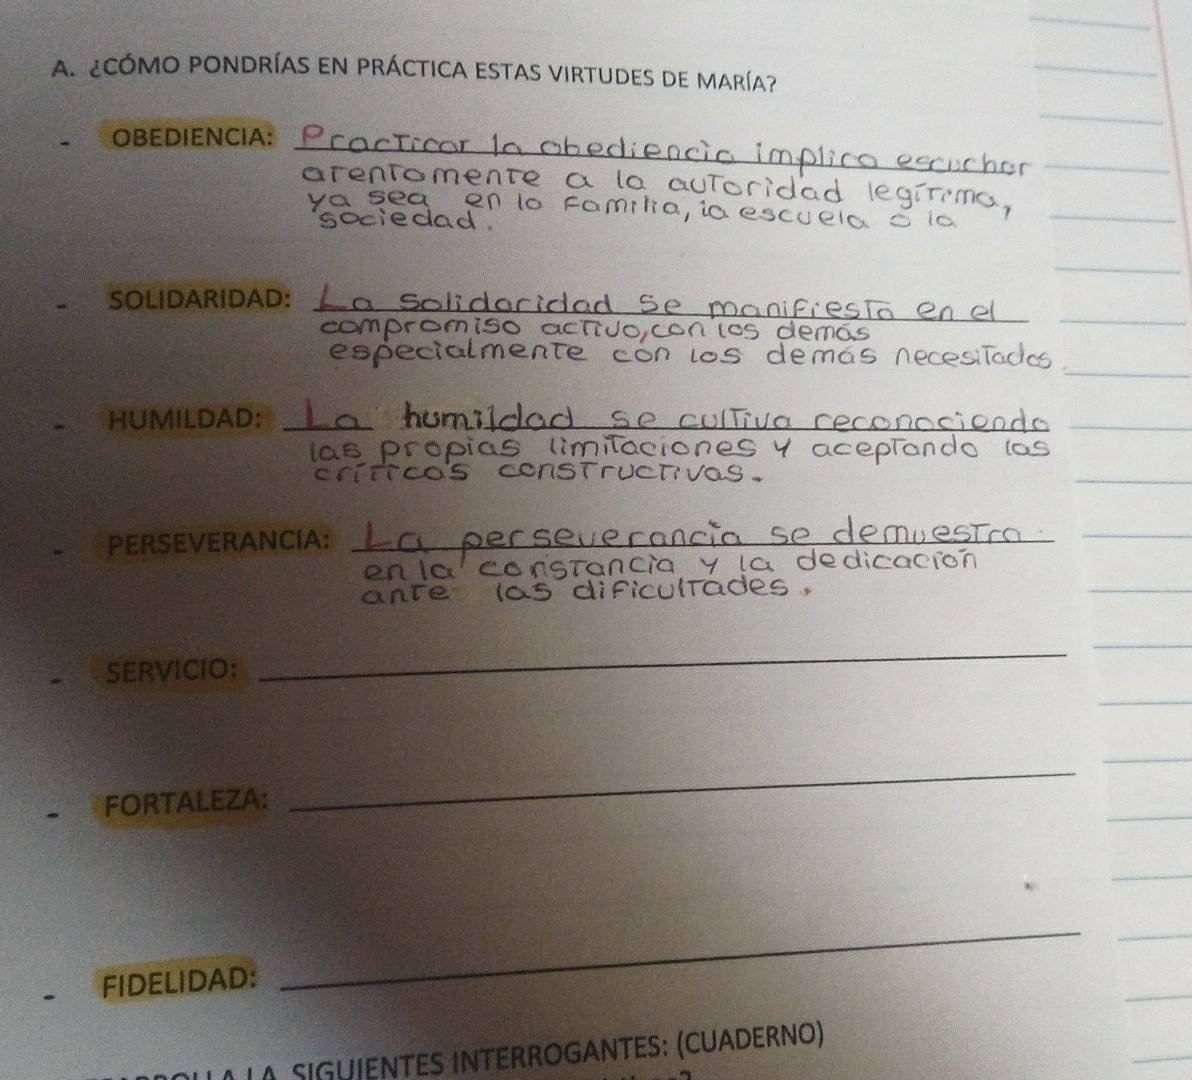 A. ¿CÓMO PONDRÍAS EN PRÁCTICA ESTAS VIRTUDES DE MARÍA?
- OBEDIENCIA: Practicar la obediencia implica escuchar
atentamente a la autoridad legítima,
ya sea en la familia, la escuela o la
sociedad.
- SOLIDARIDAD: La solidaridad se manifiesta en el
compromiso activo, con los demás
especialmente con los demás necesitados.
- HUMILDAD: La humildad se cultiva reconociendo
las propias limitaciones y aceptando las
críticas constructivas.
- PERSEVERANCIA: La perseverancia se demuestra
en la constancia y la dedicación
ante las dificultades.
- SERVICIO:
- FORTALEZA:
- FIDELIDAD:
LA SIGUIENTES INTERROGANTES: (CUADERNO)